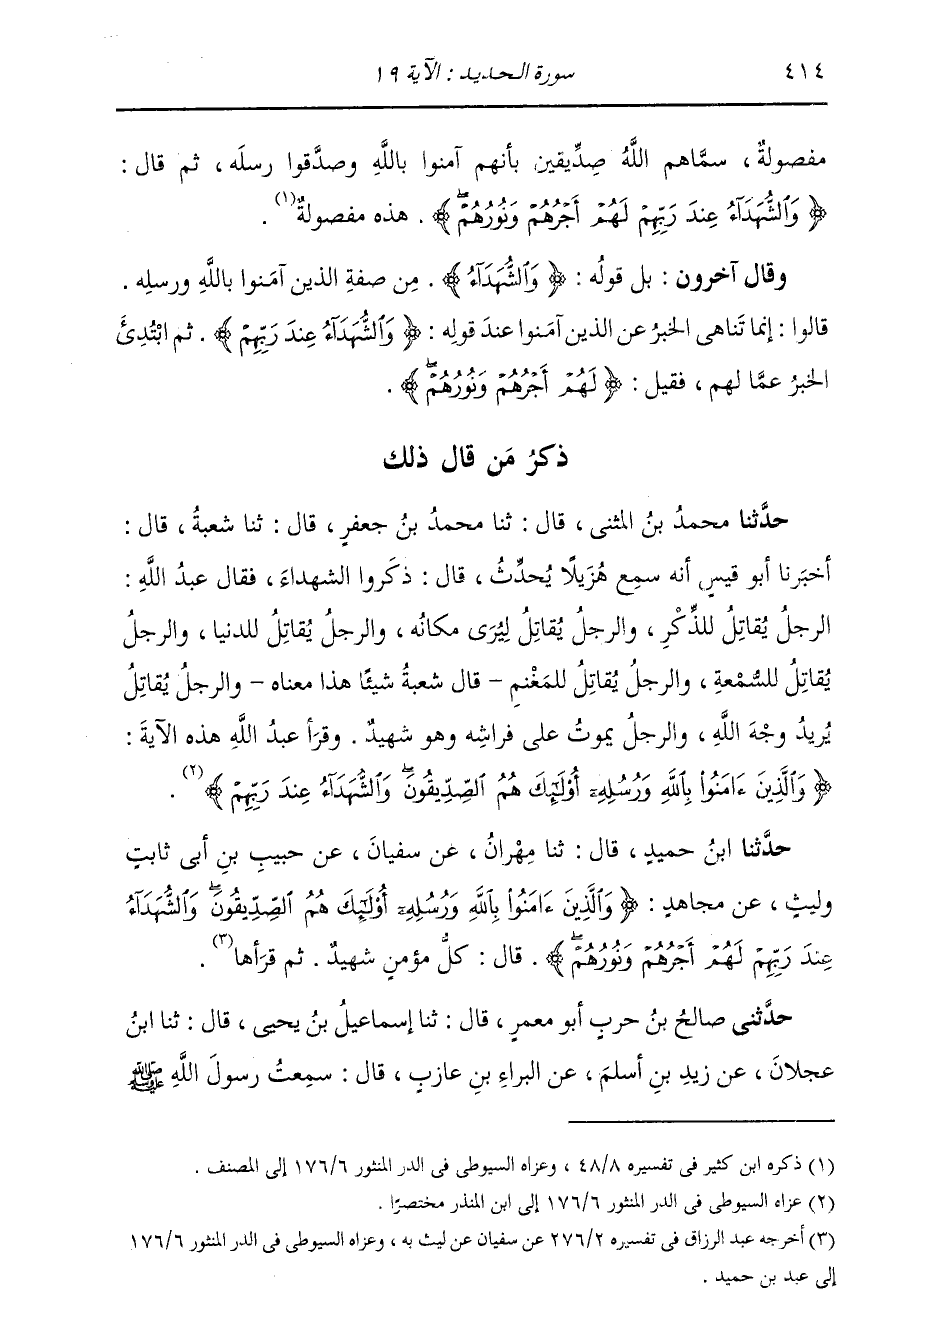 ٤١٤ سورة الحديد : الآية ١٩
مفصولةٌ ، سمَّاهم اللَّهُ صِدِّيقين بأنهم آمنوا باللَّهِ وصدَّقوا رسلَه ، ثم قال :
﴿ وَٱلشُّهَدَآءُ عِندَ رَبِّهِمْ لَهُمْ أَجْرُهُمْ وَنُورُهُمْۖ ﴾ . هذه مفصولةٌ(١) .
وقال آخرون : بل قولُه : ﴿ وَٱلشُّهَدَآءُ ﴾ . مِن صفةِ الذين آمَنوا باللَّهِ ورسلِه .
قالوا : إنما تَناهى الخبرُ عن الذين آمَنوا عندَ قولِه : ﴿ وَٱلشُّهَدَآءُ عِندَ رَبِّهِمْ ﴾ . ثم ابْتُدِئَ
الخبرُ عمَّا لهم ، فقيل : ﴿ لَهُمْ أَجْرُهُمْ وَنُورُهُمْۖ ﴾ .
ذكرُ مَن قال ذلك
حدَّثنا محمدُ بنُ المثنى ، قال : ثنا محمدُ بنُ جعفرٍ ، قال : ثنا شعبةُ ، قال :
أخبَرنا أبو قيسٍ أنه سمِع هُزَيلًا يُحدِّثُ ، قال : ذكَروا الشهداءَ ، فقال عبدُ اللَّهِ :
الرجلُ يُقاتِلُ للذِّكْرِ ، والرجلُ يُقاتِلُ لِيُرَى مكانُه ، والرجلُ يُقاتِلُ للدنيا ، والرجلُ
يُقاتِلُ للسُّمْعةِ ، والرجلُ يُقاتِلُ للمَغْنمِ - قال شعبةُ شيئًا هذا معناه - والرجلُ يُقاتِلُ
يُريدُ وجْهَ اللَّهِ ، والرجلُ يموتُ على فراشِه وهو شهيدٌ . وقرَأ عبدُ اللَّهِ هذه الآيةَ :
﴿ وَٱلَّذِينَ ءَامَنُوا۟ بِٱللَّهِ وَرُسُلِهِۦٓ أُو۟لَٰٓئِكَ هُمُ ٱلصِّدِّيقُونَۖ وَٱلشُّهَدَآءُ عِندَ رَبِّهِمْ ﴾(٢) .
حدَّثنا ابنُ حميدٍ ، قال : ثنا مِهْرانُ ، عن سفيانَ ، عن حبيبِ بنِ أبى ثابتٍ
وليثٍ ، عن مجاهدٍ : ﴿ وَٱلَّذِينَ ءَامَنُوا۟ بِٱللَّهِ وَرُسُلِهِۦٓ أُو۟لَٰٓئِكَ هُمُ ٱلصِّدِّيقُونَۖ وَٱلشُّهَدَآءُ
عِندَ رَبِّهِمْ لَهُمْ أَجْرُهُمْ وَنُورُهُمْۖ ﴾ . قال : كلُّ مؤمنٍ شهيدٌ . ثم قرَأها(٣) .
حدَّثنى صالحُ بنُ حربٍ أبو معمرٍ ، قال : ثنا إسماعيلُ بنُ يحيى ، قال : ثنا ابنُ
عجلانَ ، عن زيدِ بنِ أسلمَ ، عن البراءِ بنِ عازبٍ ، قال : سمِعتُ رسولَ اللَّهِ ﷺ
(١) ذكره ابن كثير فى تفسيره ٤٨/٨ ، وعزاه السيوطى فى الدر المنثور ١٧٦/٦ إلى المصنف .
(٢) عزاه السيوطى فى الدر المنثور ١٧٦/٦ إلى ابن المنذر مختصرًا .
(٣) أخرجه عبد الرزاق فى تفسيره ٢٧٦/٢ عن سفيان عن ليث به ، وعزاه السيوطى فى الدر المنثور ١٧٦/٦
إلى عبد بن حميد .